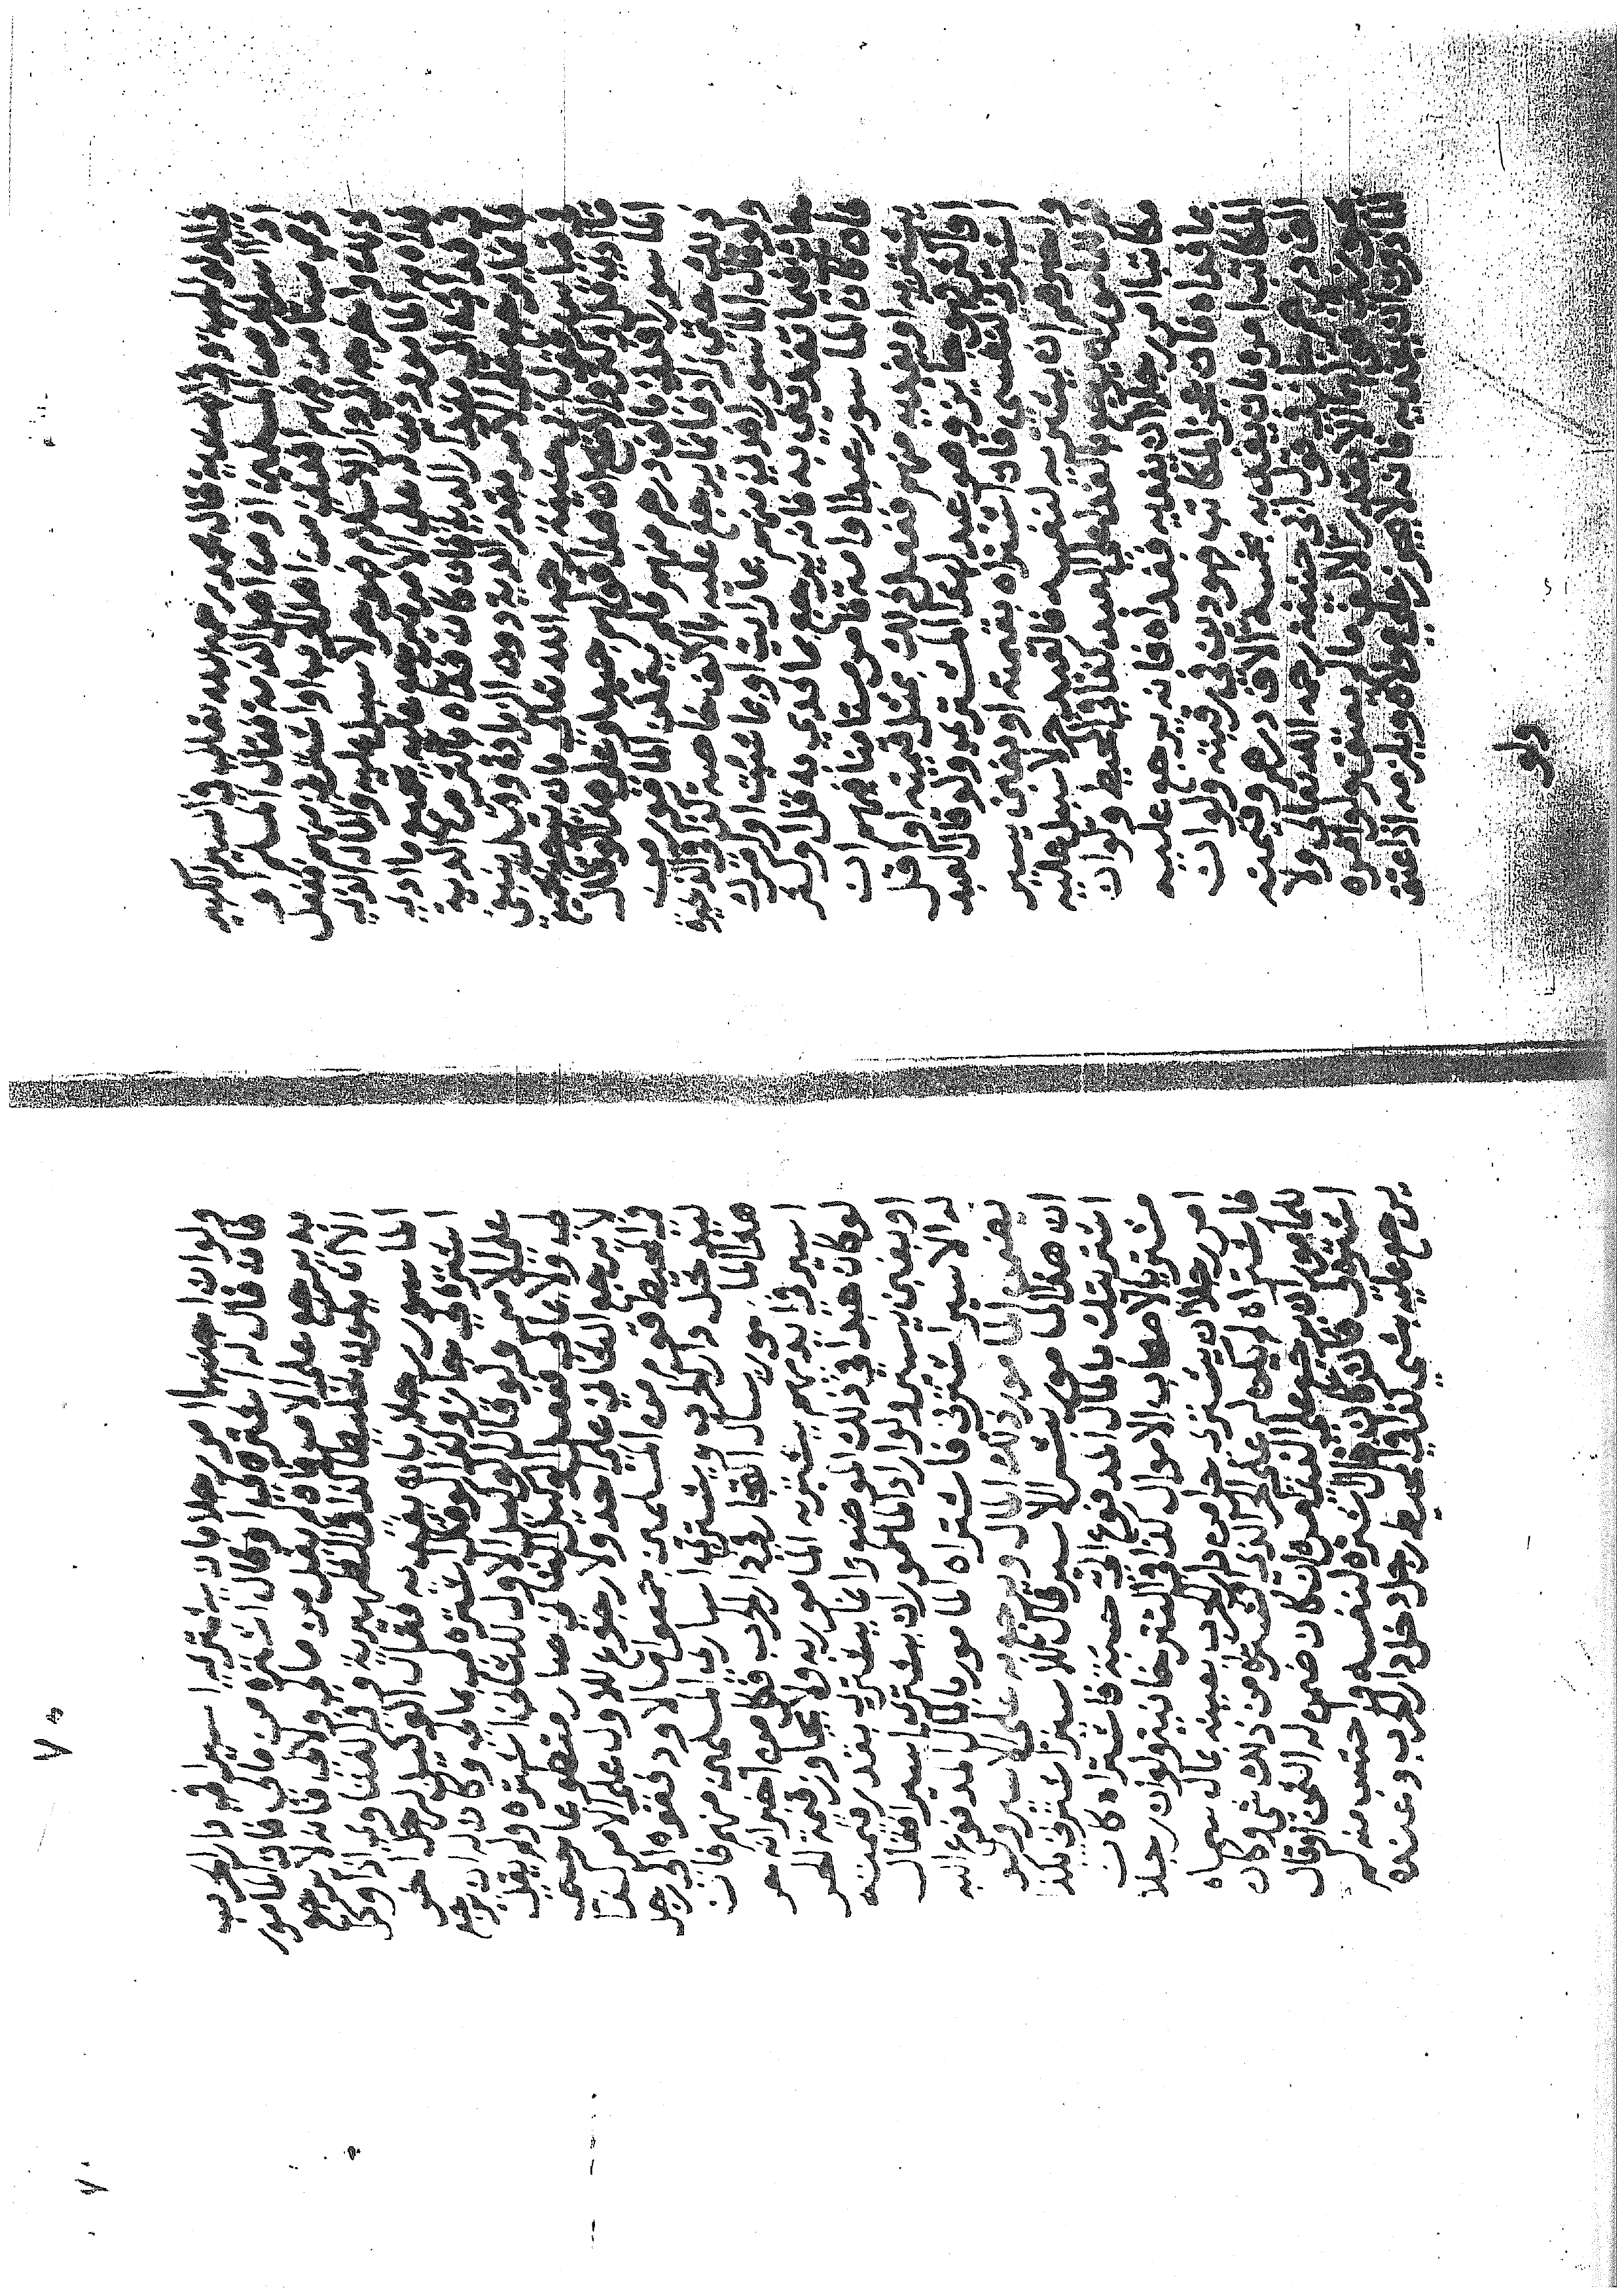 قال محمد رحمه الله تعالى في السير الكبير
اسير من المسلمين او من اهل الذمة فقال لمسلم او
ذمي مستامن فيهم افدني من اهل الحرب او اشترني منهم ففعل
ذلك واخرجه الى دار الاسلام فهو حر لا سبيل عليه والمال الذي
فداه به المامور دين له على الامر يرجع عليه بجميع ما ادى
وفداه به الى مقدار الدية فان كان فداه باكثر من الدية
فانما يرجع على الامر بقدر الدية دون الزيادة وقيل ينبغي
على قياس قول ابي حنيفة رحمه الله تعالى بان يرجع بجميع
ما ادى قل او كثر والاصح ان هذا قولهم جميعا ولو قال
الماسور افدني بالف درهم منهم فلم يقدر المامور من
ذلك حتى زاد فانما يرجع عليه بالالف خاصة كذا في الذخيرة
ولو قال الماسور افدني منهم بما رايت او بما شئت او امرك
جائز فيما تفديني به فانه يرجع ما فدى به قل او كثر
فان كان الماسور عبدا او امة فامر مستامنا فيهم ان
يشتريه او يفديه منهم ففعل ذلك بمثل قيمته او اقل
او اكثر فهو جائز وهو عبد لهذا المشتري ولو قال العبد
اشترني لنفسي فاذا اشتراه بقيمته او بغبن يسير
واخبرهم انه يشتريه لنفسه فالعبد حر لا سبيل عليه
يرجع بالفداء على العبد كذا في المحيط ولو ان
مكاتبا امر رجلا ان يفديه ففداه فانه يرجع عليه
بما فداه فان عجز المكاتب فهو دين في رقبته ولو ان
المكاتب امر بان يفديه بخمسة الاف درهم وقيمته
الف درهم جاز في قول ابي حنيفة رحمه الله تعالى ولا
يجوز الا بقدر الالف ما لم يعتق ولو امره
الماذون ان يفديه فانه لا يجوز على مولاه ويلزمه اذا عتق
ولو
ولو ان اجنبيا امر رجلا بان يشتري اسيرا في دار الحرب
فان قال له اشتره لي او قال اشتره من مالي فاذا المامور
به يرجع على الامر وان لم يقل من مالي ولا لي فانه لا يرجع
الا ان يكون خليطا كذا في الظهيرية وفي الفتاوى اذا وكل
الماسور رجلا بان يفديه فقال الوكيل لرجل اخر
اشتره لي جاز ولو قال الوكيل اشتره لي بمالي وكان له ان يرجع
على الامر ولو قال الوكيل الاول للثاني اشتره ولم يقل
لي ولا بمالي ففعل الوكيل الثاني صار متطوعا حتى
لا يرجع الثاني على احد ولا رجوع للاول على الامر كذا
في المحيط قوم من المسلمين جمعوا مالا ودفعوه الى رجل
ليدخل دار الحرب ويشتري اسارى المسلمين منهم فان
هذا المامور يسال التجار في دار الحرب فكل من اخبر انه حر
اسير في ايديهم يشتريه المامور به ولا يجاوز قيمة الحر
لو كان عبدا في ذلك الموضع وانما يشتري بقدر قيمته
او بغبن يسير ولو اراد المامور ان يشتري اسيرا فقال
له الاسير اشترني فاشتراه المامور بالمال المدفوع اليه
يضمن المامور ذلك المال ويرجع على الاسير ولو
ان هذا المامور بشراء الاسير قال للاسير اشتريك
اشتريتك بالمال المدفوع الي حسبة فاشتراه كان
مشتريا لاصحاب الاموال كذا في التترخانية ولو ان رجلا
امر رجلا ان يشتري حرا من دار الحرب بعينه بمال سماه
فاشتراه لم يكن له على الحر الذي اشتراه من ذلك شي وكان
للمامور ان يرجع على الذي امره ان كان ضمن له الثمن او قال
اشتره لي فان كان قال اشتره لنفسه واحتسب منه لم
يرجع عليه بشي كذا في المحيط رجل دخل دار الحرب وعنده